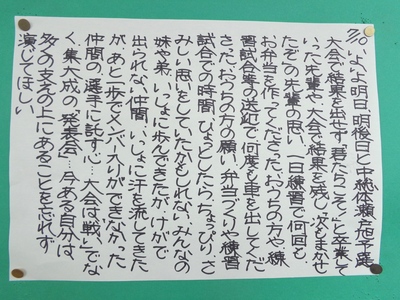 いよいよ明日、明後日と中総体瀬谷予選
大会で結果を出せず「君たちこそ!」と卒業して
いった先輩や、大会で結果を感じ「次をまかせ
たぞ」の先輩の思い、一日練習で何回も
お弁当を作ってくださったおうちの方や練
習試合等の送迎で何度も車を出してくだ
さったおうちの方の願い、弁当づくりや練習
試合での時間、ひょっとしたらちょっぴりさ
みしい思いをしていたかもしれないみんなの
妹や弟、いっしょに歩んできたが、けがで
出られない仲間、いっしょに汗を流してきた
が、あと一歩でメンバー入りができなかった
仲間の「選手に託す心…大会は「戦い」でな
く、集大成の「発表会」…今ある自分は、
多くの支えの上にあることを忘れず
演じてほしい